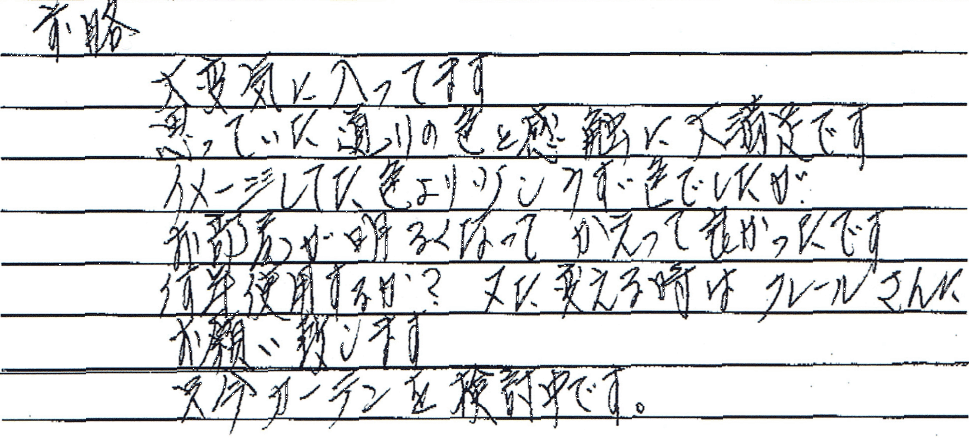 前略
大変気に入ってます
思っていた通りの色と感触に大満足です
イメージしてた色より少しうすい色でしたが
お部屋が明るくなってかえって良かったです
何年使用するか? 又に変える時は クレールさんに
お願い致します
次今カーテンを検討中です。